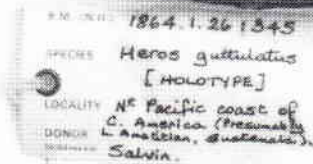 B.M. (N.H.) 1864.1.26:345
SPECIES Heros guttulatus
[HOLOTYPE]
LOCALITY Nr Pacific coast of
C. America (Presumably
L. Amatitlan, Guatemala).
DONOR
Salvin.